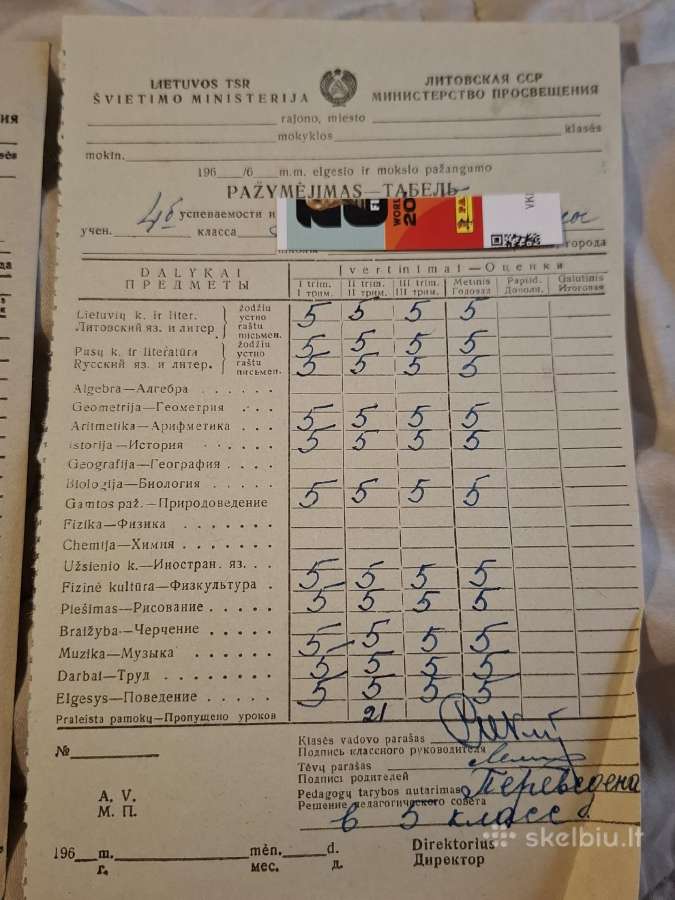 LIETUVOS TSR ЛИТОВСКАЯ ССР
ŠVIETIMO MINISTERIJA МИНИСТЕРСТВО ПРОСВЕЩЕНИЯ
rajono, miesto
mokyklos klasės
mokin.
196 /6 m.m. elgesio ir mokslo pažangumo
PAŽYMĖJIMAS—ТАБЕЛЬ
успеваемости и
учен. 4б класса
города
WORL
20
DALYKAI Įvertinimai—Оценки
ПРЕДМЕТЫ
I trim. II trim. III trim. Metinis Papild. Galutinis
I трим. II трим. III трим. Годовая Дополн. Итоговая
Lietuvių k. ir liter. žodžiu устно 5 5 5 5
Литовский яз. и литер. raštu письмен.
Rusų k. ir literatūra žodžiu устно 5 5 5 5
Русский яз. и литер. raštu письмен. 5 5 5 5
Algebra—Алгебра
Geometrija—Геометрия
Aritmetika—Арифметика 5 5 5 5
Istorija—История 5 5 5 5
Geografija—География
Biologija—Биология
Gamtos paž.—Природоведение 5 5 5 5
Fizika—Физика
Chemija—Химия
Užsienio k.—Иностран. яз. 5 5 5 5
Fizinė kultūra—Физкультура
Piešimas—Рисование 5 5 5 5
Braižyba—Черчение
Muzika—Музыка 5 5 5 5
Darbai—Труд 5 5 5 5
Elgesys—Поведение 5 5 5 5
Praleista pamokų—Пропущено уроков 21
№
Klasės vadovo parašas
Подпись классного руководителя
Tėvų parašas
Подпись родителей
Pedagogų tarybos nutarimas Переведена
Решение педагогического совета
в 5 класс
A. V.
М. П.
196 m. mėn. d. Direktorius
г. мес. д. Директор
skelbiu.lt